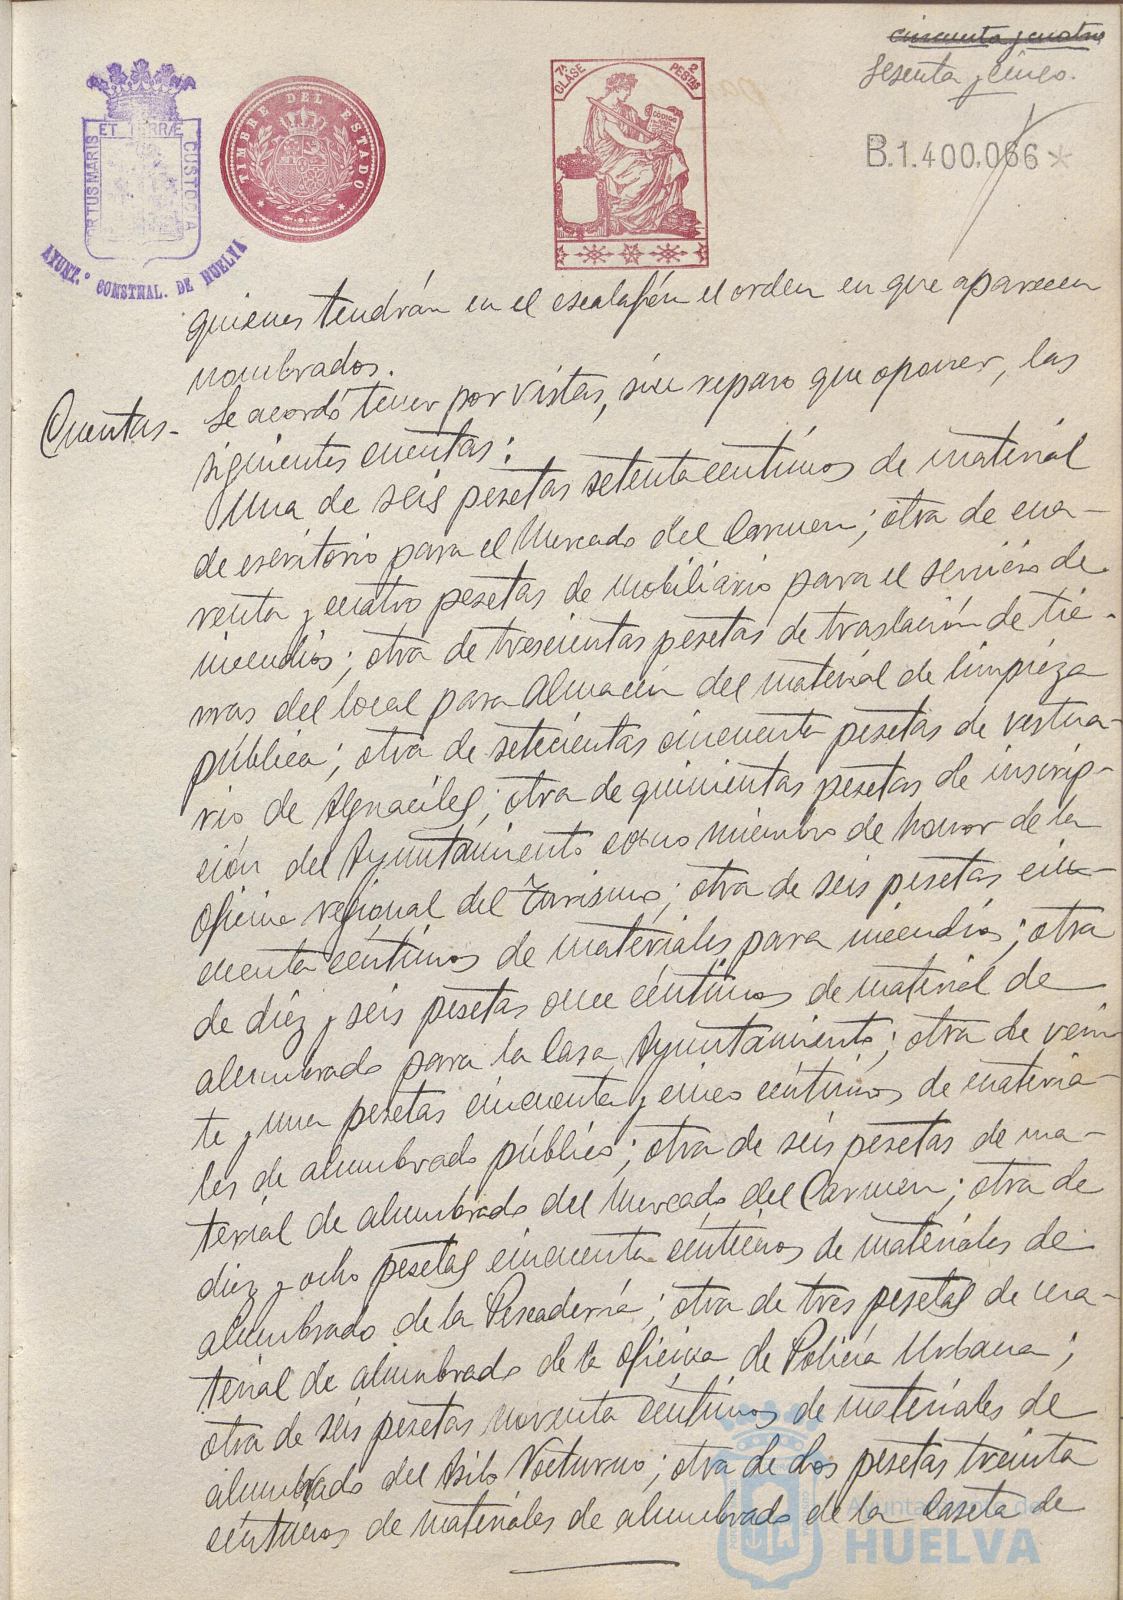 cincuenta y cuatro
Sesenta y cinco.
7ª CLASE
2 PESTAS
CODIGO
TIMBRE DEL ESTADO
ET TERRÆ
PORTUS MARIS
CUSTODIA
AYUNT.º CONSTNAL. DE HUELVA
B.1.400.066*
quienes tendrán en el escalafón el orden en que aparecen
nombrados.
Cuentas- Se acordó tener por vistas, sin reparo que oponer, las
siguientes cuentas:
Una de seis pesetas setenta centimos de material
de escritorio para el Mercado del Carmen; otra de cua-
renta y cuatro pesetas de mobiliario para el servicio de
incendios; otra de trescientas pesetas de traslación de tie-
rras del local para Almacén del material de limpieza
pública; otra de setecientas cincuenta pesetas de vestua-
rio de Alguaciles; otra de quinientas pesetas de inscrip-
ción del Ayuntamiento como miembro de honor de la
Oficina regional del Turismo; otra de seis pesetas cin-
cuenta céntimos de materiales para incendios; otra
de diez y seis pesetas once céntimos de material de
alumbrado para la Casa Ayuntamiento; otra de vein
te y una pesetas cincuenta y cinco céntimos de materia-
les de alumbrado público; otra de seis pesetas de ma-
terial de alumbrado del Mercado del Carmen; otra de
diez y ocho pesetas cincuenta céntimos de materiales de
alumbrado de la Pescadería; otra de tres pesetas de ma-
terial de alumbrado de la oficina de Policía Urbana;
otra de seis pesetas noventa céntimos de materiales de
alumbrado del Asilo Nocturno; otra de dos pesetas treinta
céntimos de materiales de alumbrado de la Caseta de
Ayuntamiento de
HUELVA